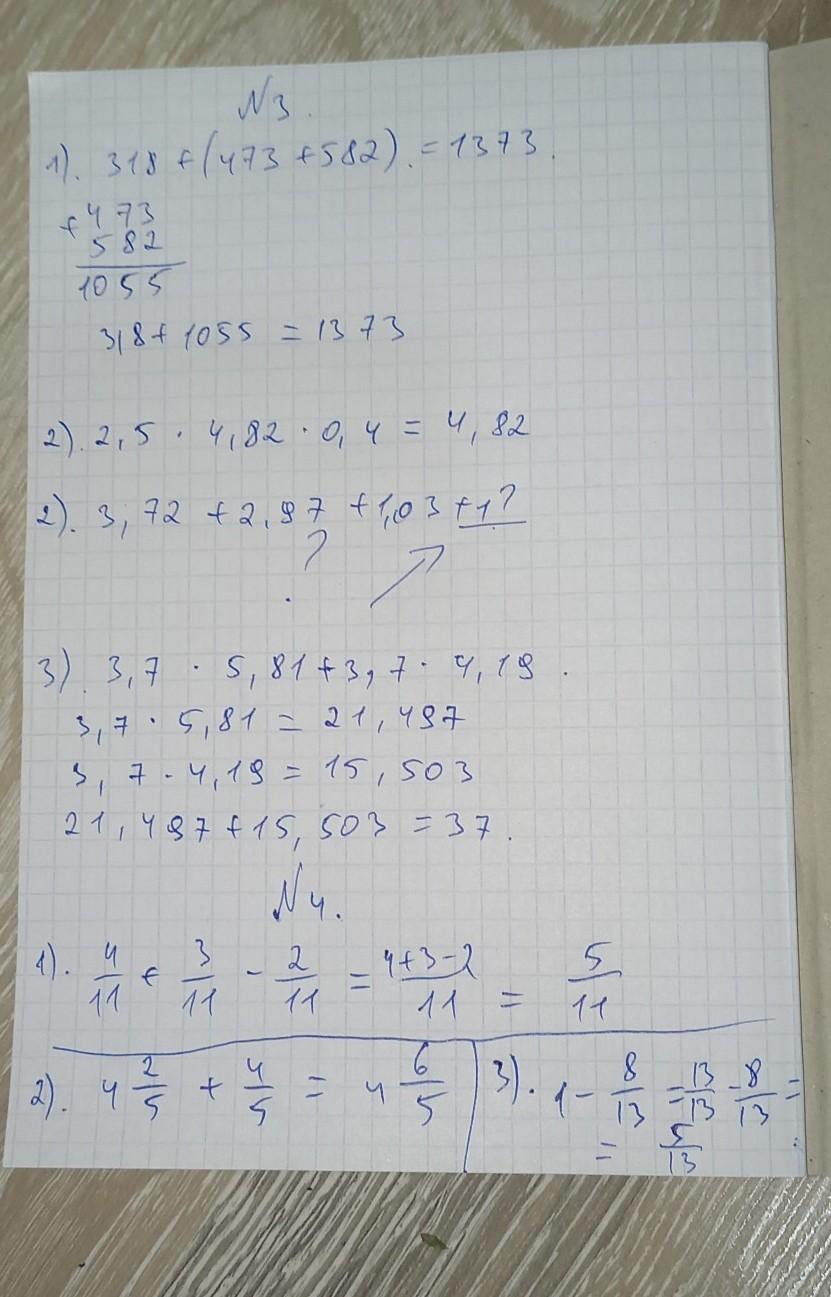 N3.
1). 318 + (473 + 582). = 1373.
+ 473
582
1055
318 + 1055 = 1373
2). 2,5 · 4,82 · 0,4 = 4,82
2). 3,72 + 2,97 + 1,03 + 1?
?
3). 3,7 · 5,81 + 3,7 · 4,19.
3,7 · 5,81 = 21,497
3,7 · 4,19 = 15,503
21,497 + 15,503 = 37.
N4.
1). 4/11 + 3/11 - 2/11 = 4+3-2/11 = 5/11
2). 4 2/5 + 4/5 = 4 6/5
3). 1 - 8/13 = 13/13 - 8/13 =
= 5/13